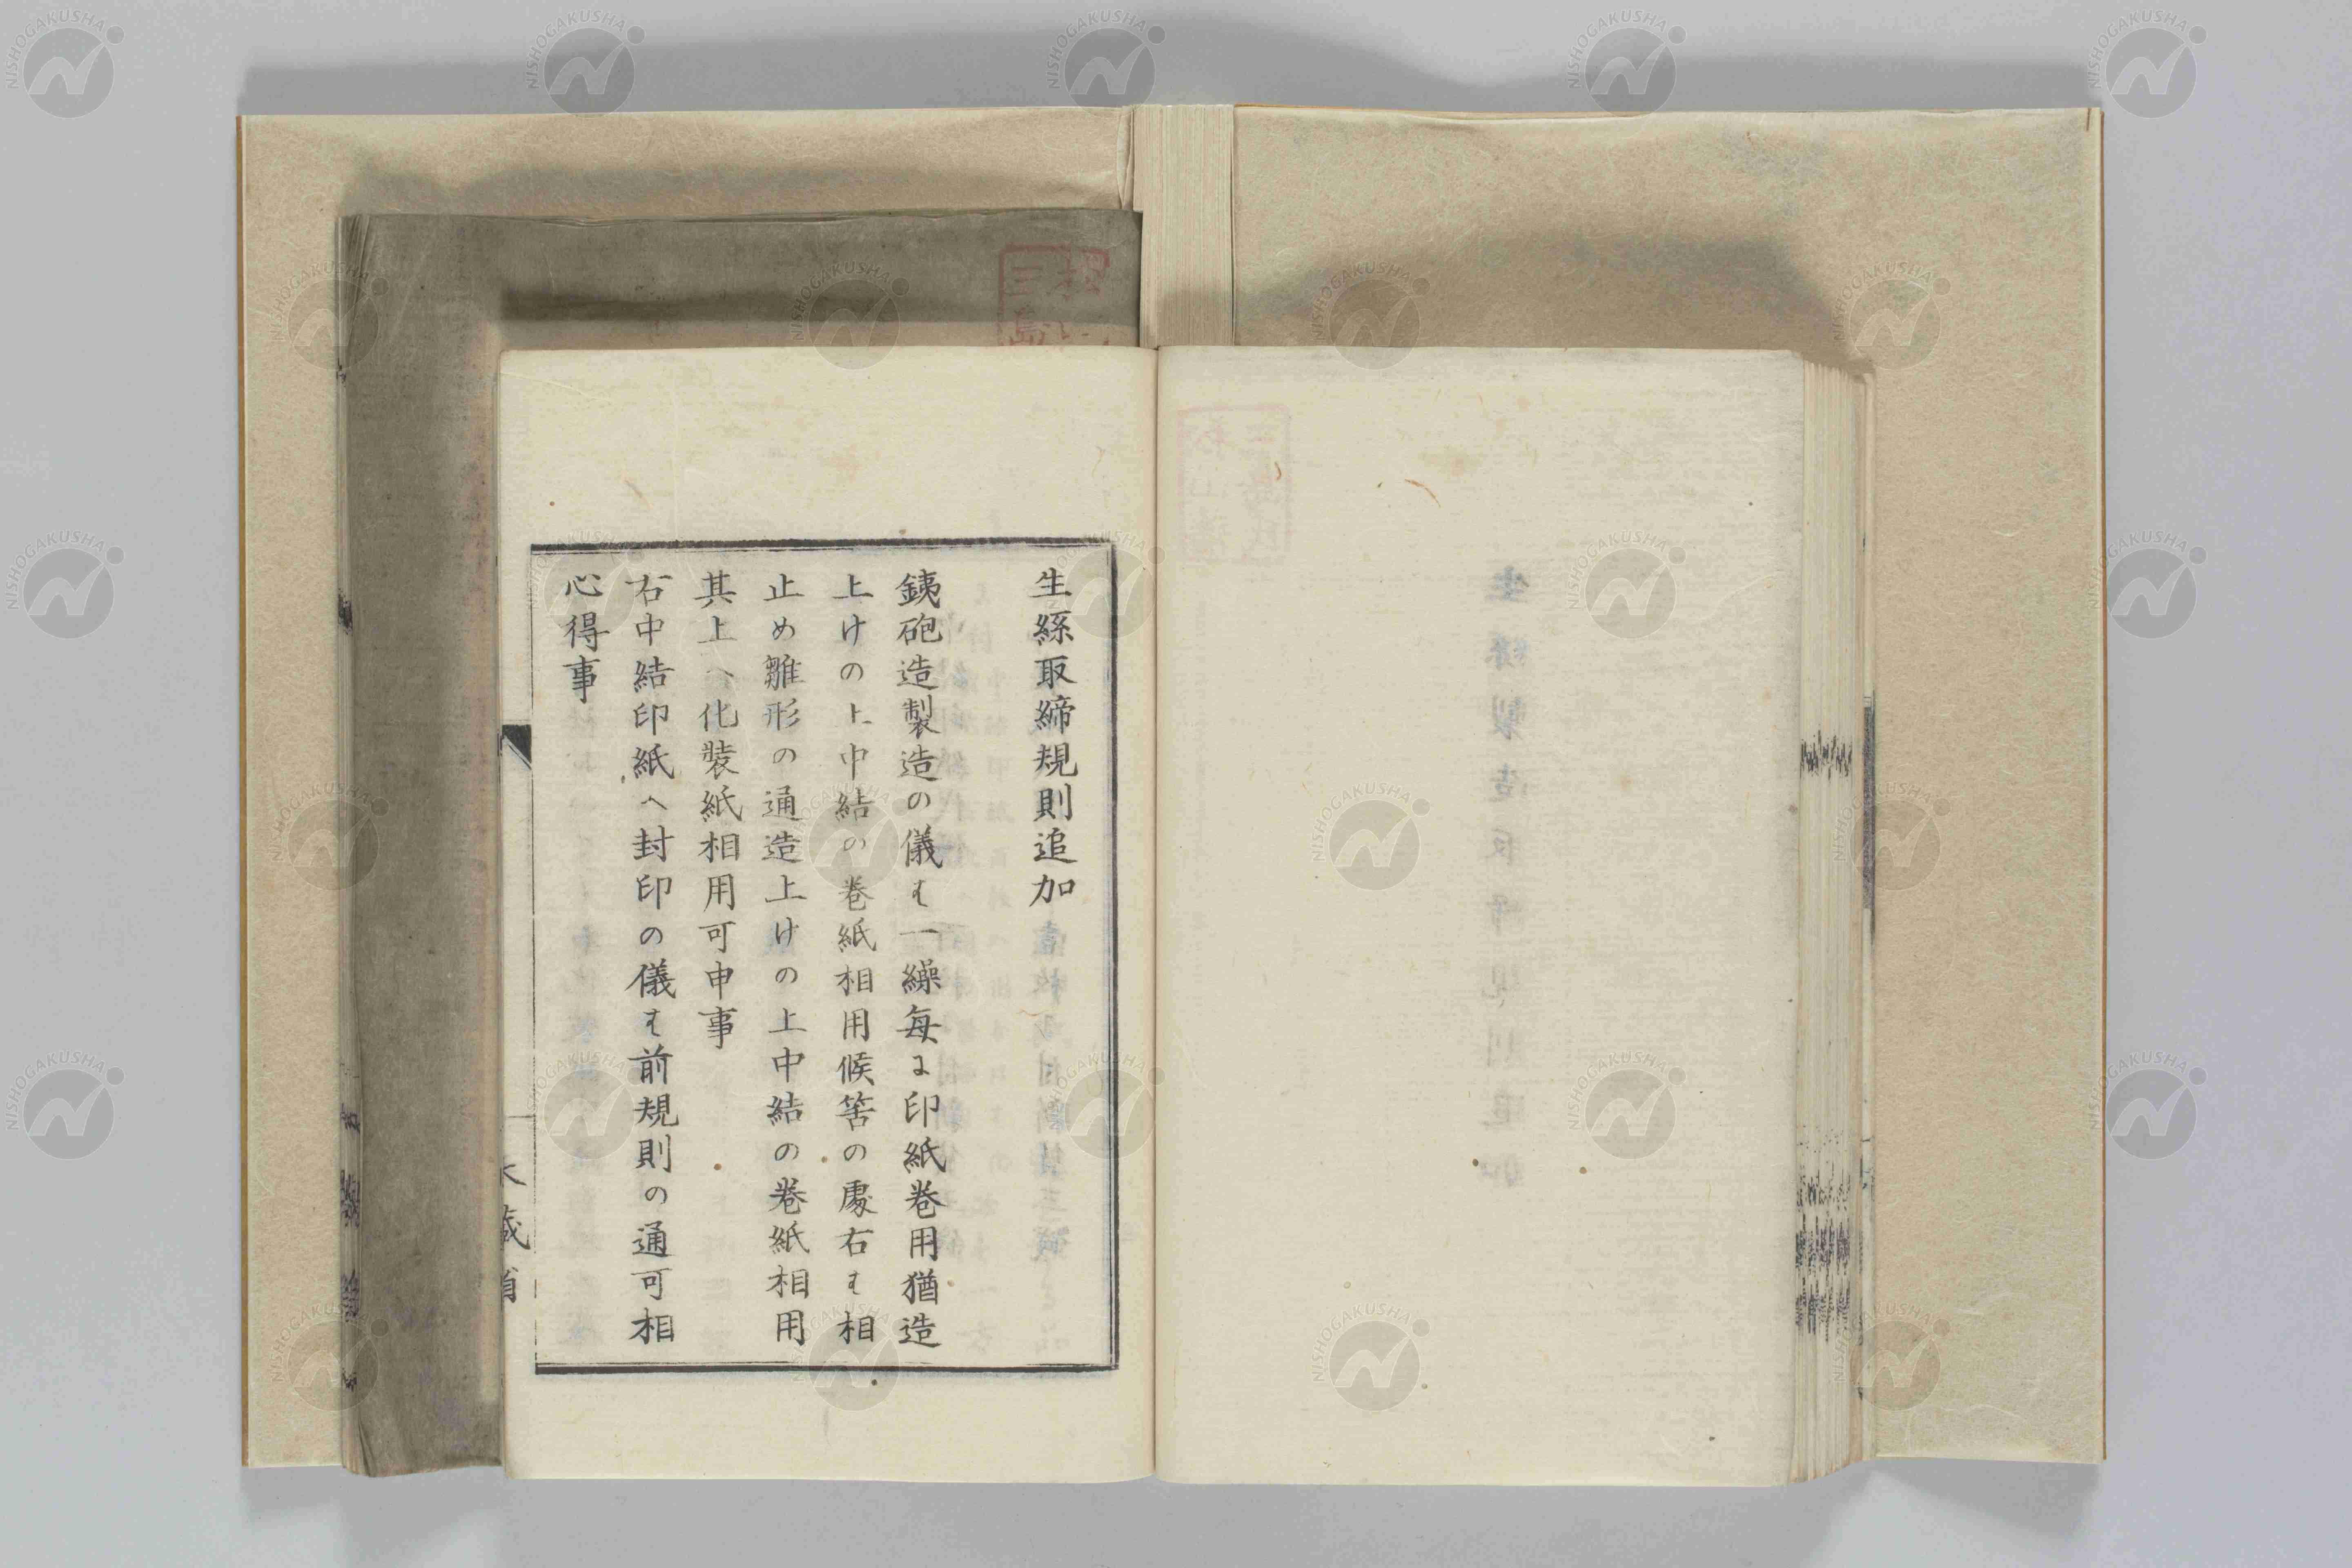 生絲取締規則追加
銕砲造製造の儀ハ一繰毎に印紙卷用猶造
上けの上中結の卷紙相用候筈の處右ハ相
止め雛形の通造上けの上中結の卷紙相用
其上へ化裝紙相用可申事
右中結印紙へ封印の儀ハ前規則の通可相
心得事
大藏省
NISHOGAKUSHA